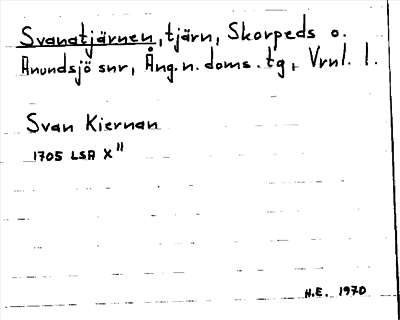 Svanatjärnen, tjärn, Skorpeds o.
Anundsjö snr, Ång.n.doms.tg, Vrnl. l.
Svan Kiernan
1705 LSA X"
H.E. 1970